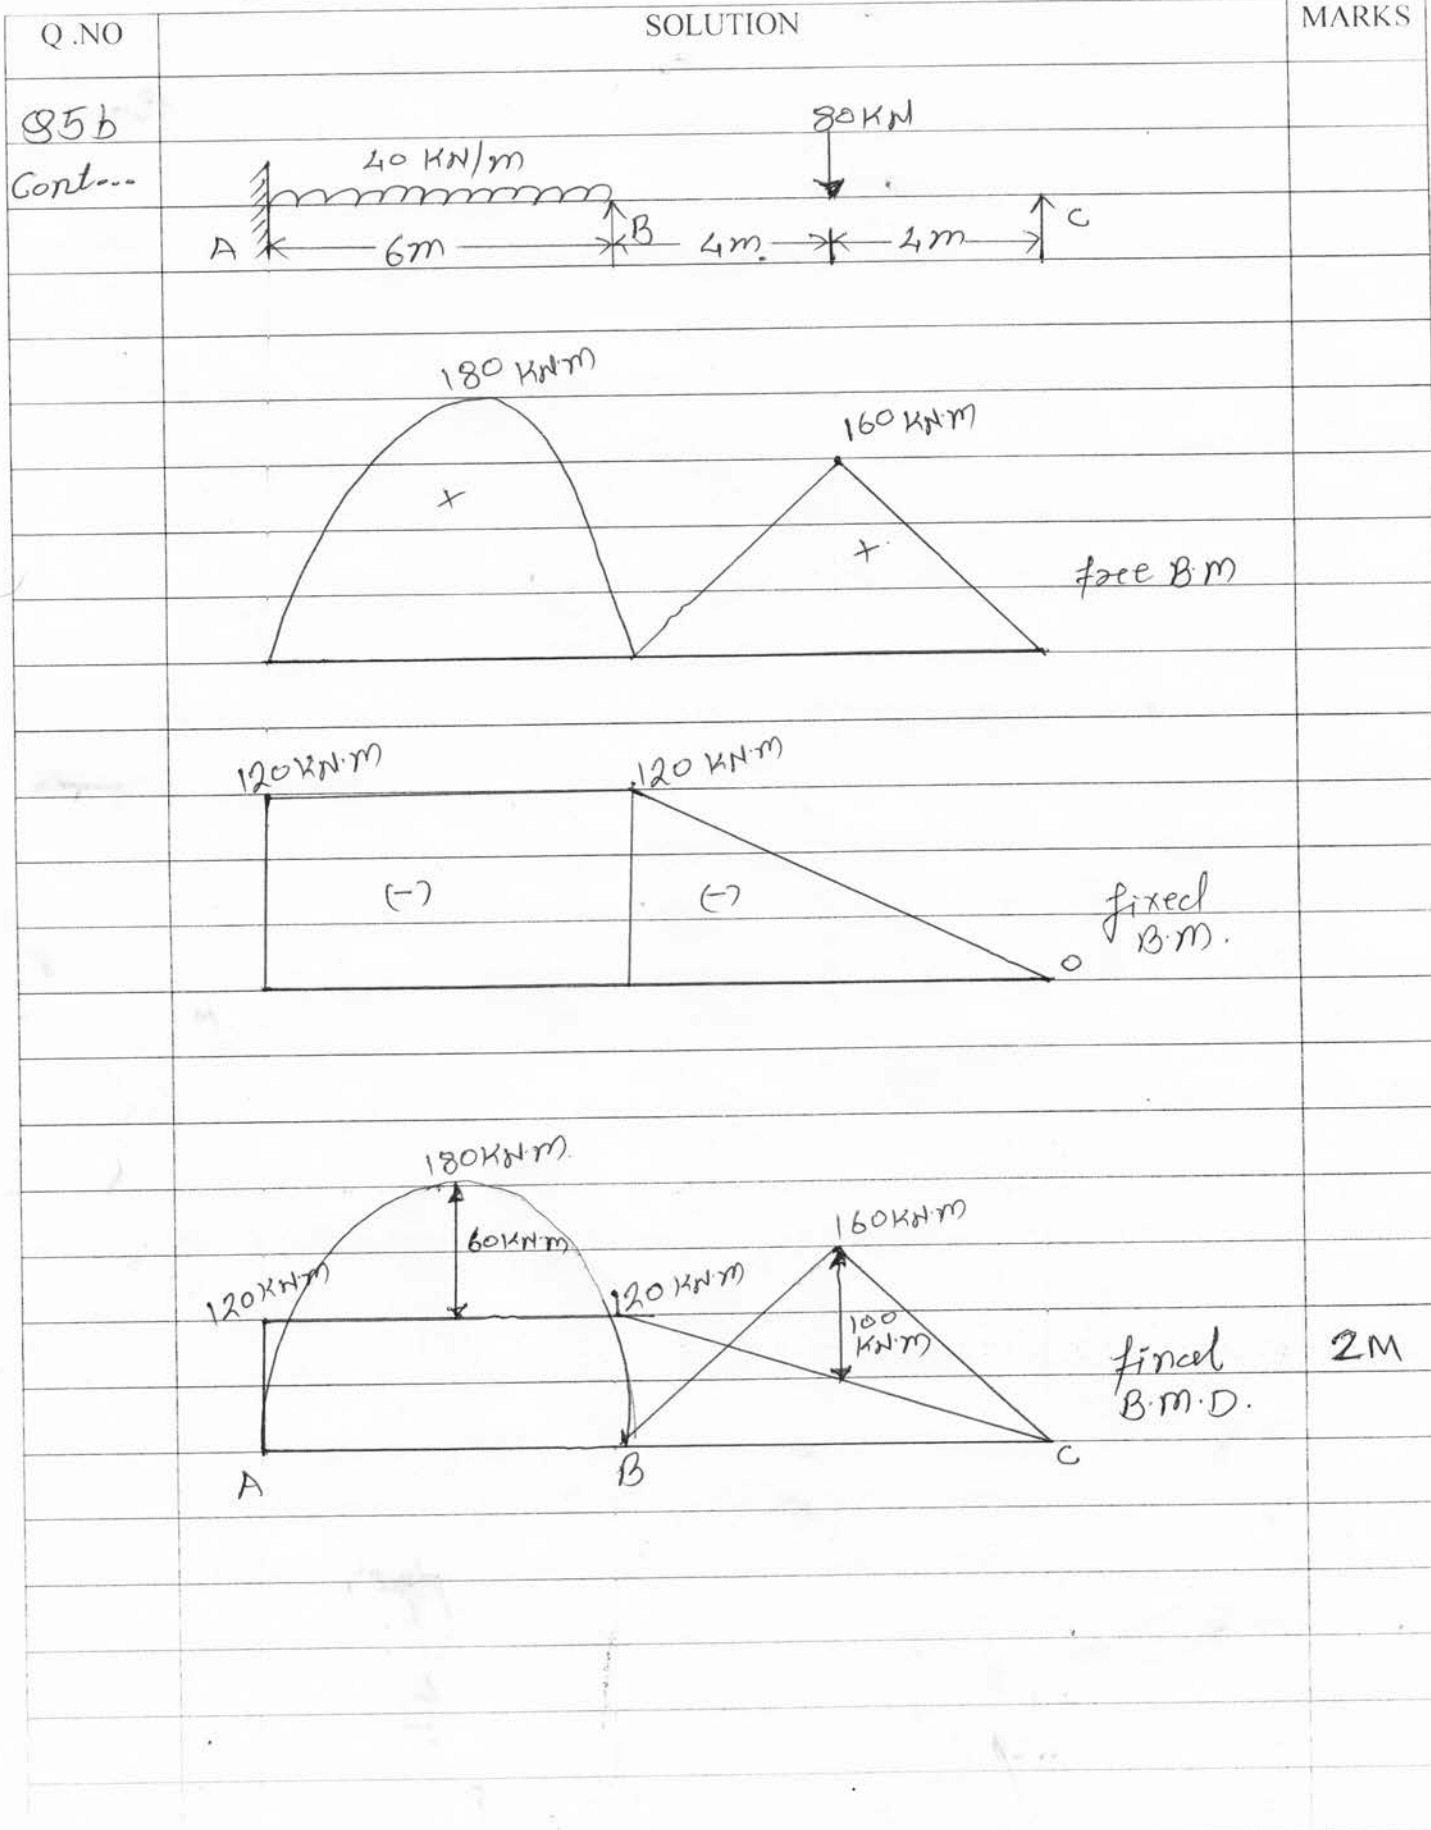 Q.NO SOLUTION MARKS
Q5b
Cont...
80 KN
40 KN/m
A 6m B 4m. 4m C
180 KN.m
160 KN.m
+
+
free B.M
120 KN.m 120 KN.m
(-) (-)
fixed
B.M.
0
180 KN.m.
160 KN.m
60 KN.m
120 KN.m 120 KN.m
100
KN.m
final 2M
B.M.D.
A B C